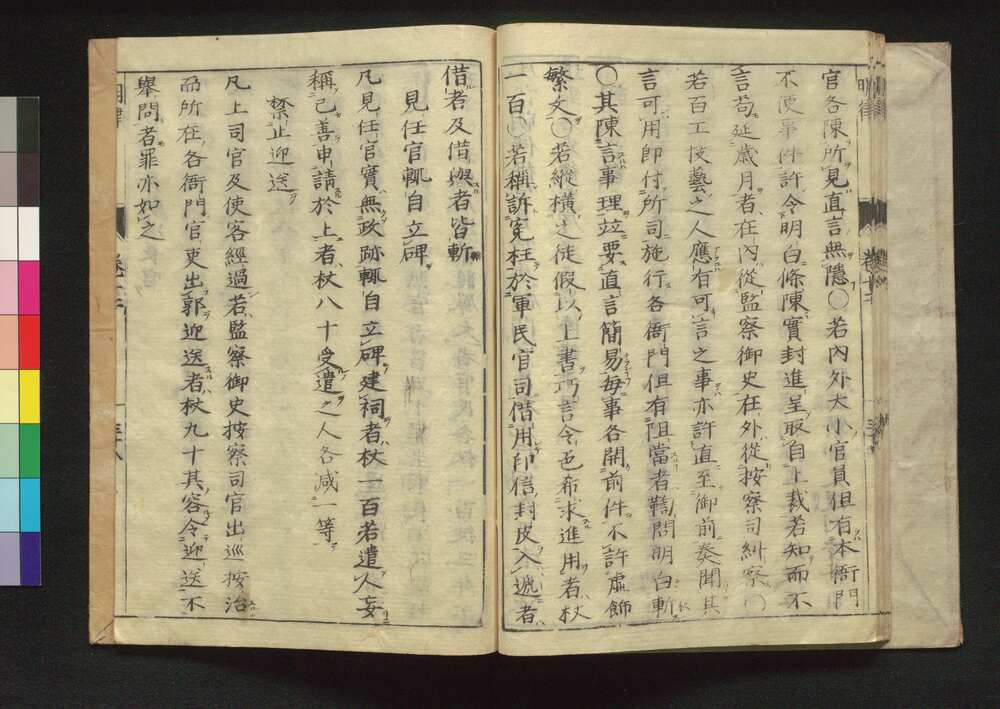 官各陳所見直言無隱○若內外大小官員但有本衙門
不便事件許令明白條陳實封進呈取自上裁若知而不
言苟延歲月者在內從監察御史在外從按察司糾察○
若百工技藝之人應有可言之事亦許直至御前奏聞其
言可用即付所司施行各衙門但有阻當者鞫問明白斬
○其陳言事理並要直言簡易每事各開前件不許虛飾
繁文○若縱橫之徒假以上書巧言令色希求進用者杖
一百○若稱訴冤枉於軍民官司借用印信封皮入遞者
借者及借與者皆斬
見任官輒自立碑
凡見任官實無政跡輒自立碑建祠者杖一百若遣人妄
稱己善申請於上者杖八十受遣之人各減一等
禁止迎送
凡上司官及使客經過若監察御史按察司官出巡按治
而所在各衙門官吏出郭迎送者杖九十其容令迎送不
舉問者罪亦如之
明律
卷十二